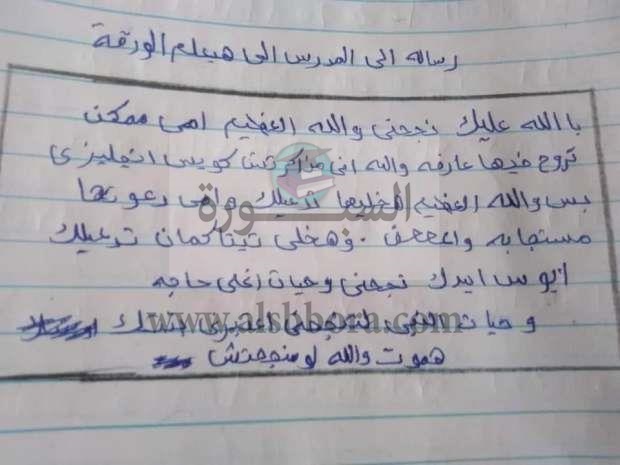 رساله الى المدرس الى هيعلم الورقة
با الله عليك نجحنى والله العظيم امى ممكن
تروح فيها عارفه والله انى مذاكرتش كويس انجليزى
بس والله العظيم هخليها تدعيلك وامى دعوتها
مستجابه واعععف . وهخلى تيتا كمان تدعيلك
ابوس ايدك نجحنى وحيات اغلى حاجه
وحيات لتنجحنى
هموت والله لو منجحتش
السبورة
www.alsbbora.com